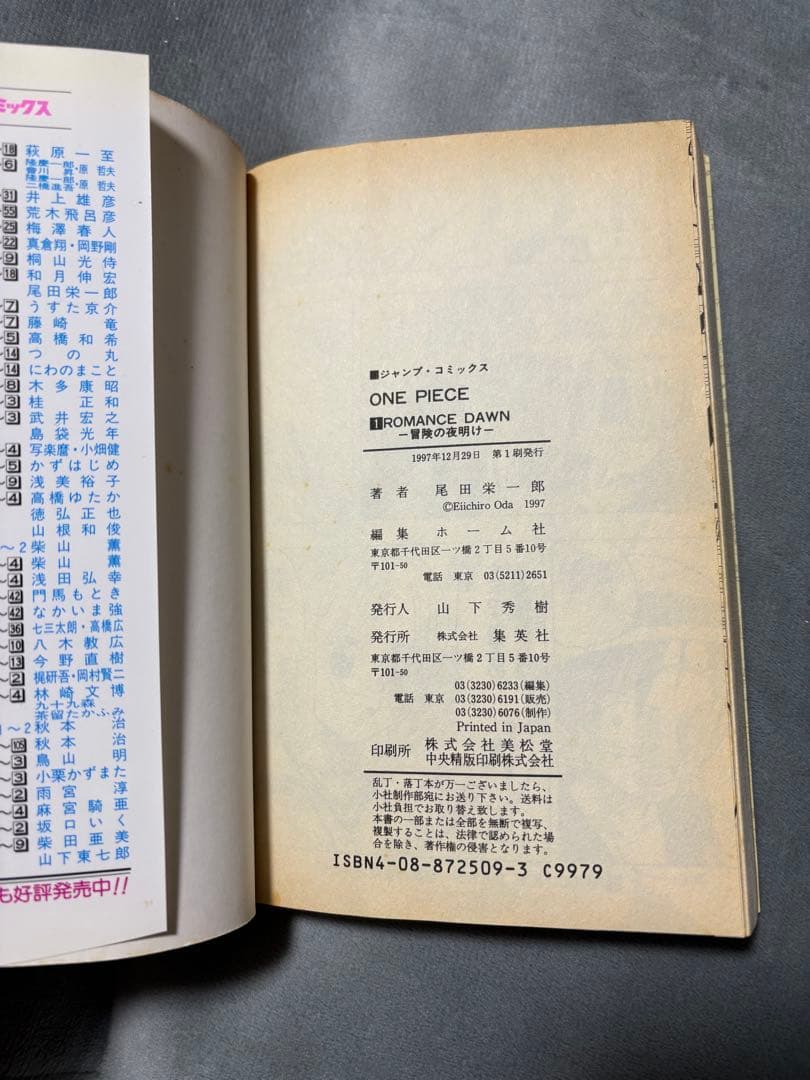 ミックス
~18 萩原一至
~6 隆慶一郎・原 哲夫
會川 昇
隆慶一郎・原 哲夫
二橋進吾
~31 井上雄彦
~55 荒木飛呂彦
~25 梅澤春人
~22 真倉翔・岡野剛
~9 桐山光侍
~18 和月伸宏
尾田栄一郎
~7 うすた京介
~7 藤崎 竜
~5 高橋和希
~14 つの丸
~14 にわのまこと
~8 木多康昭
~3 桂 正和
~3 武井宏之
島袋光年
~4 写楽麿・小畑健
~5 かずはじめ
~9 浅美裕子
~4 高橋ゆたか
徳弘正也
山根和俊
~2 柴山 薫
~4 柴山 薫
~4 浅田弘幸
~42 門馬もとき
~42 なかいま強
~36 七三太朗・高橋広
~10 八木教広
~13 今野直樹
~2 梶研吾・岡村賢二
~4 林崎文博
九十九森
茶留たかふみ
1~2 秋本 治
~105 秋本 治
~3 鳥山 明
~3 小栗かずまた
~2 雨宮 淳
~4 麻宮騎亜
~2 坂口いく
~9 柴田亜美
山下東七郎
も好評発売中!!
■ジャンプ・コミックス
ONE PIECE
1 ROMANCE DAWN
—冒険の夜明け—
1997年12月29日 第1刷発行
著者 尾田栄一郎
©Eiichiro Oda 1997
編集 ホーム社
東京都千代田区一ツ橋2丁目5番10号
〒101-50
電話 東京 03(5211)2651
発行人 山下秀樹
発行所 株式会社 集英社
東京都千代田区一ツ橋2丁目5番10号
〒101-50
03(3230)6233(編集)
電話 東京 03(3230)6191(販売)
03(3230)6076(制作)
Printed in Japan
印刷所 株式会社美松堂
中央精版印刷株式会社
乱丁・落丁本が万一ございましたら、
小社制作部宛にお送り下さい。送料は
小社負担でお取り替え致します。
本書の一部または全部を無断で複写、
複製することは、法律で認められた場
合を除き、著作権の侵害となります。
ISBN4-08-872509-3 C9979